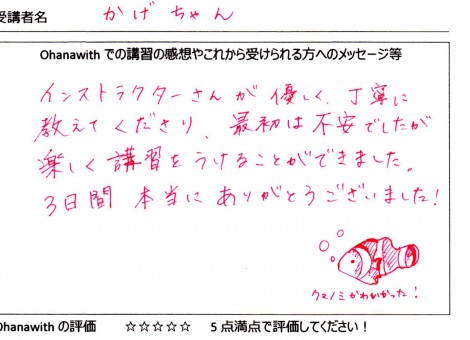 受講者名 かげちゃん
Ohanawith での講習の感想やこれから受けられる方へのメッセージ等
インストラクターさんが 優しく、丁寧に
教えてくださり、最初は不安でしたが
楽しく講習をうけることができました。
3日間 本当に ありがとうございました!
クマノミかわいかった!
Ohanawith の評価 ☆☆☆☆☆ 5点満点で評価してください!